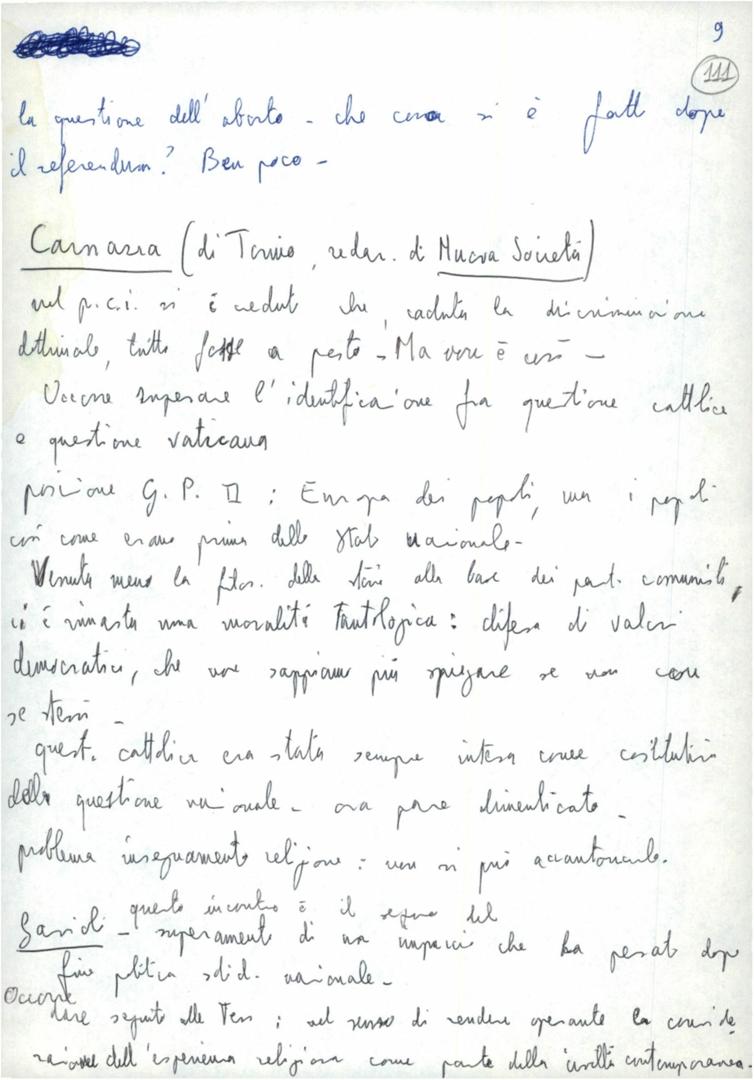 9
111
la questione dell'aborto - che cosa si è fatto dopo
il referendum? Ben poco -
Carnazza (di Torino, redaz. di Nuova Società)
nel p.c.i. si è creduto che, caduta la discriminazione
dottrinale, tutto fosse a posto - Ma non è così -
Occorre superare l'identificazione fra questione cattolica
e questione vaticana
posizione G. P. II : Europa dei popoli, ma i popoli
così come erano prima dello Stato nazionale -
Venuta meno la filos. della storia alla base dei part. comunisti,
ci è rimasta una moralità tautologica: difesa di valori
democratici, che non sappiamo più spiegare se non con
se stessi -
quest. cattolica era stata sempre intesa come costitutiva
della questione nazionale - ora pare dimenticato -
problema insegnamento religione : non si può accantonarlo.
questo incontro è il segno del
- superamento di un impaccio che ha pesato dopo
fine politica solid. nazionale -
Occorre
dare seguito alle Tesi ; nel senso di rendere operante la conside
razione dell'esperienza religiosa come parte della civiltà contemporanea